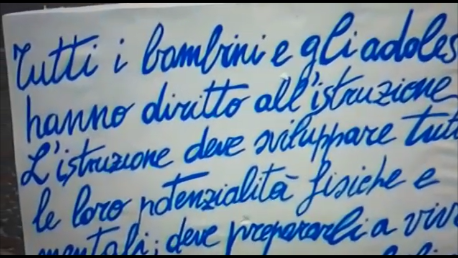 Tutti i bambini e gli adoles
hanno diritto all'istruzione
L'istruzione deve sviluppare tutt
le loro potenzialità fisiche e
mentali; deve prepararli a viv